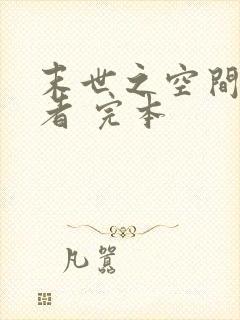 末世之空間
者 完本
凡囂